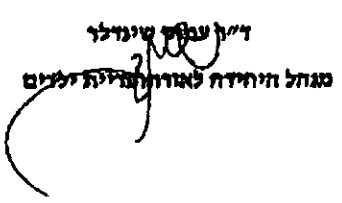 ד״ר עמוס שינדלר
מנהל היחידה לאורתופדיית ילדים